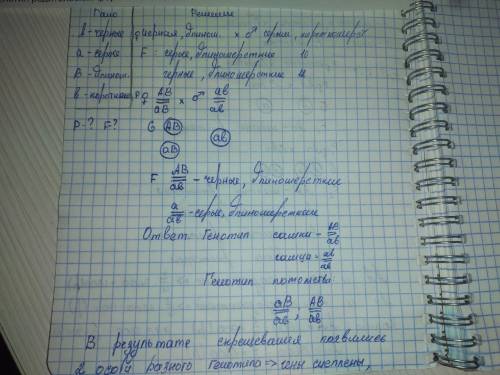 Дано Решение
А - черные ♀ черная, длинн. × ♂ серый, короткошерст
а - серые F: серые, длинношерстные 10
В - длинн. черные, длинношерстные
в - короткие P ♀ AB/aB × ♂ ab/ab
P-? F? G AB ab
aB
F AB/ab - черные, длинношерсткие
a/ab - серые, длинношерсткие
Ответ: Генотип самки - AB/ab
самца - ab/ab
Генотип потомства
aB/ab ; AB/ab
В результате скрещевания появилось
2 особи разного генотипа => гены сцеплены,